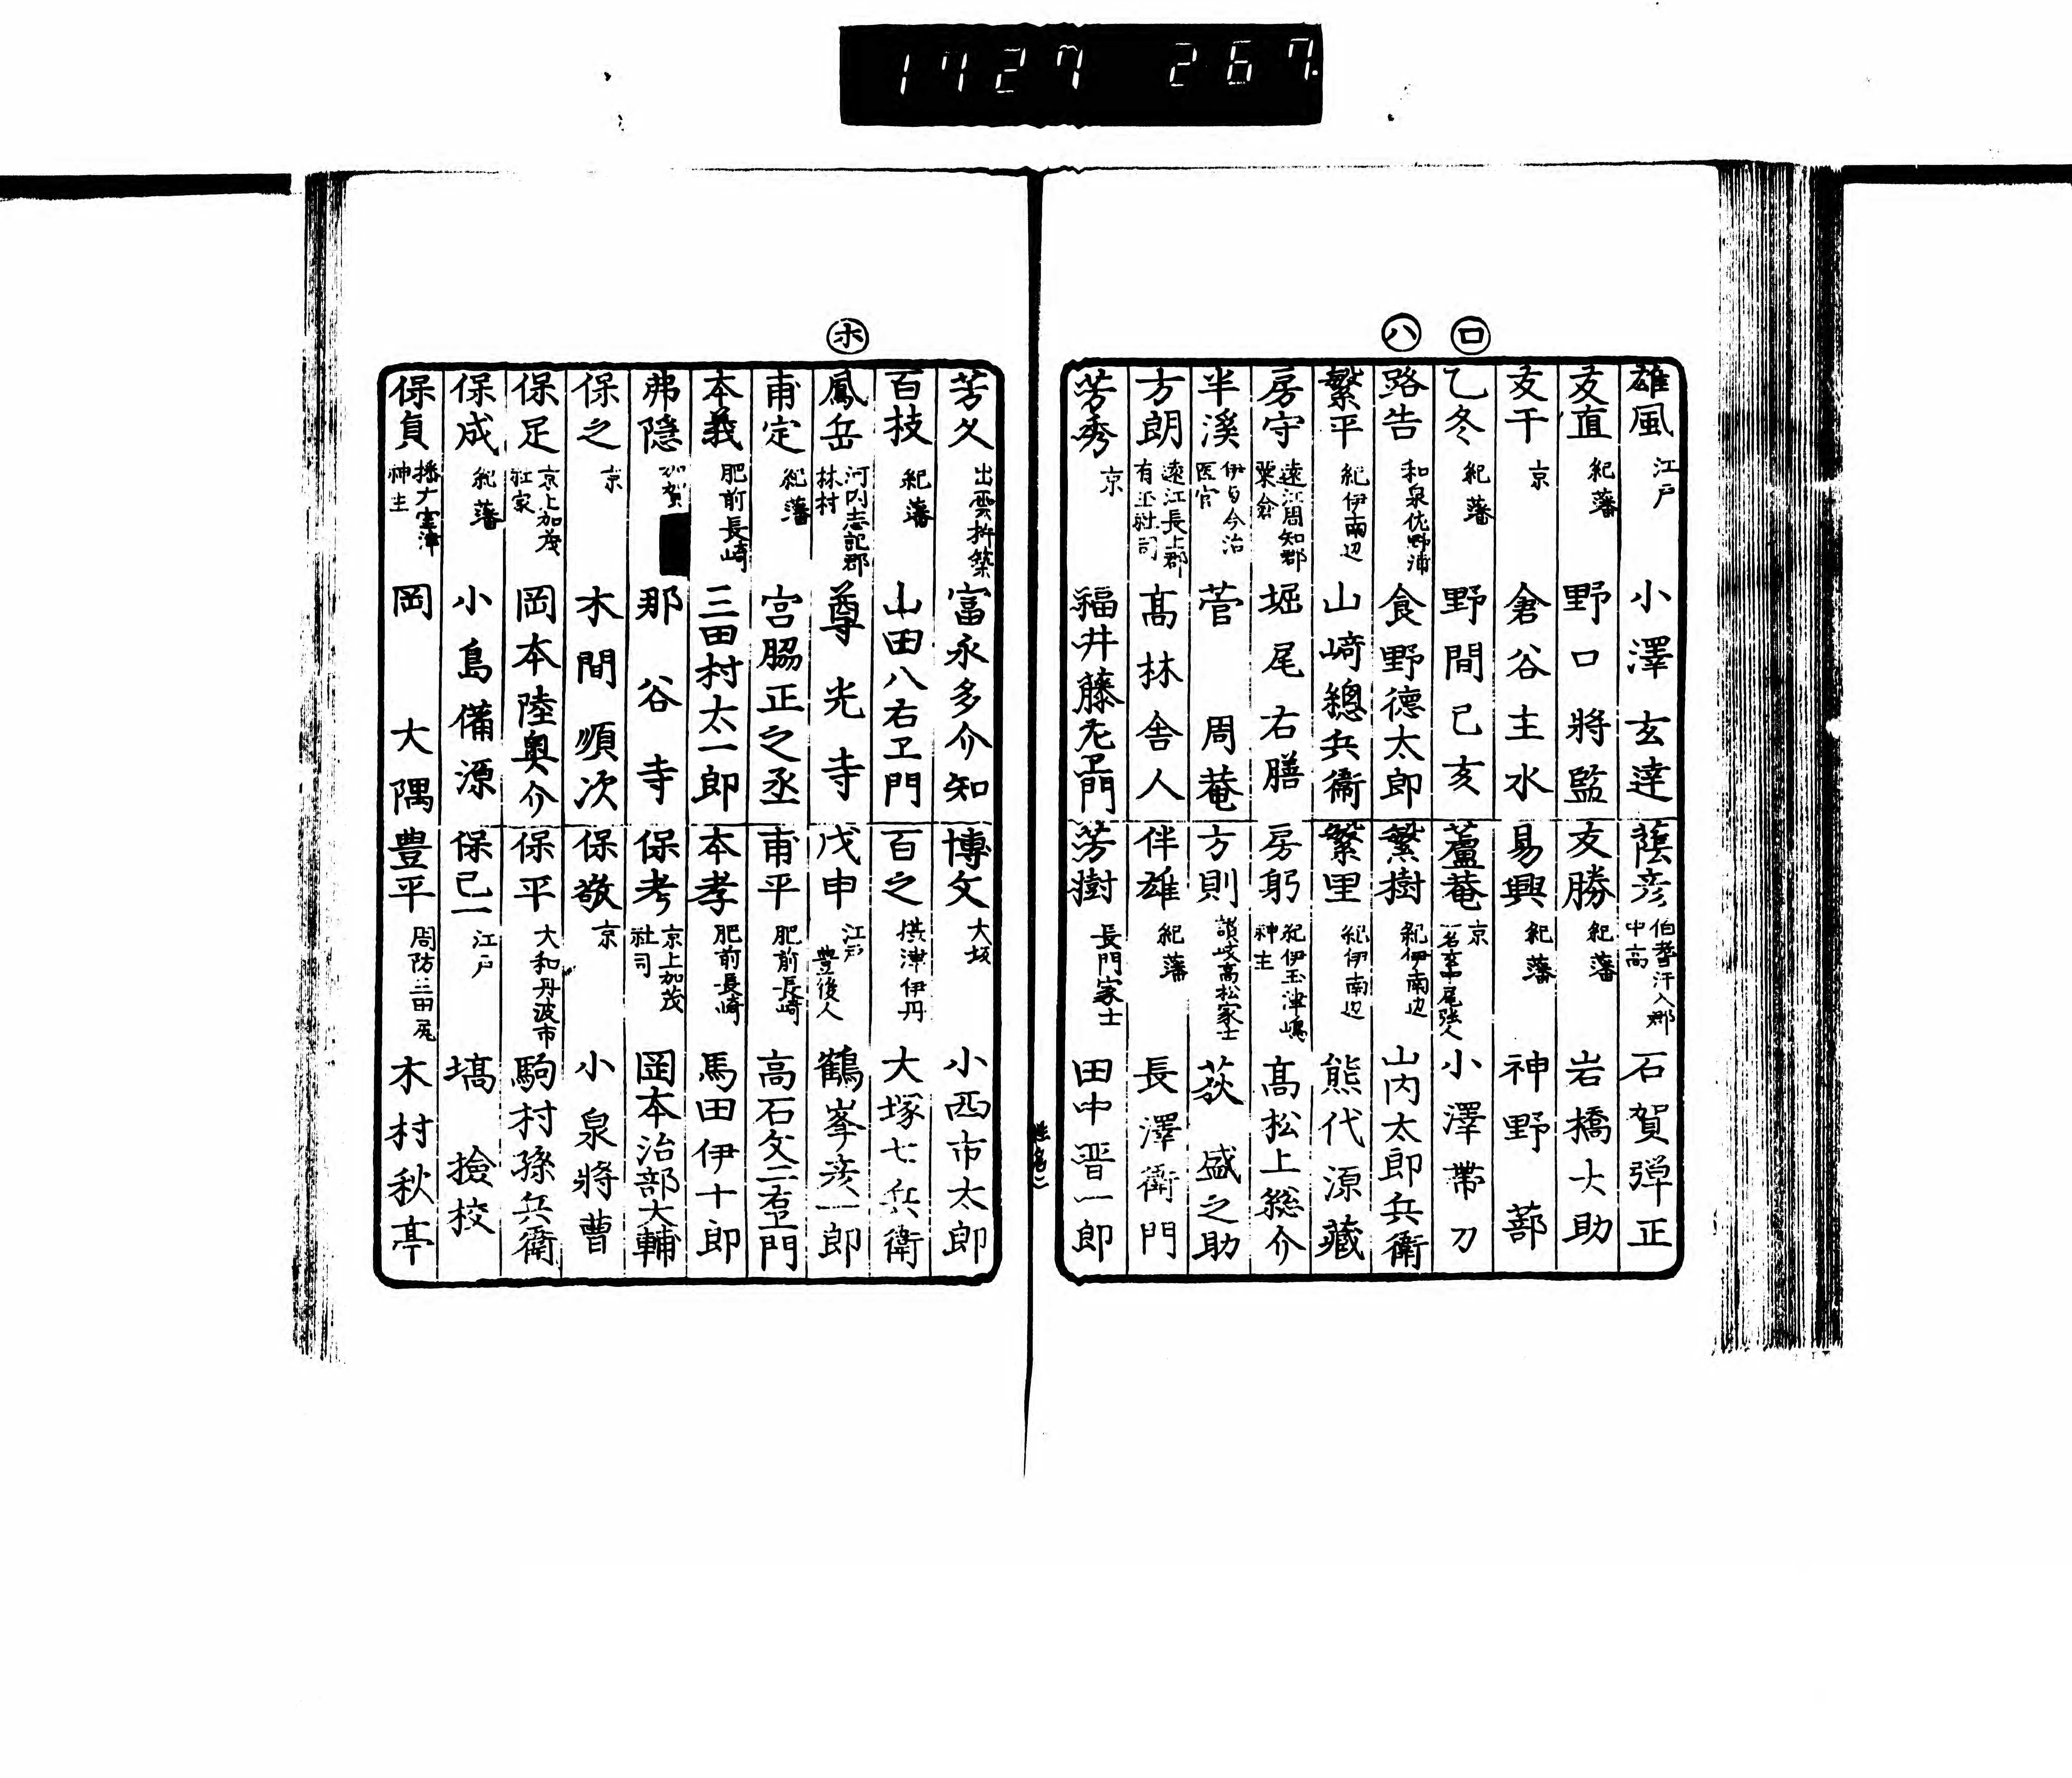 1727 267
ロ
ハ
雄風 江戸 小澤玄達
友直 紀藩 野口將監
友干 京 倉谷主水
乙冬 紀藩 野間己亥
路告 和泉佐野浦 食野德太郎
繁平 紀伊南辺 山﨑總兵衛
房守 遠江周知郡粟倉 堀尾右膳
半溪 伊与今治医官 菅周菴
方朗 遠江長上郡有玉社司 髙林舎人
芳秀 京 福井藤左卫門
蔭彦 伯耆汗入郡中高 石賀弾正
友勝 紀藩 岩橋大助
易興 紀藩 神野蔀
蘆菴 京 小澤帯刀
繁樹 紀伊南辺 山内太郎兵衛
繁里 紀伊南辺 熊代源藏
房躬 紀伊玉津嶋神主 髙松上総介
方則 讃岐高松家士 荻盛之助
伴雄 紀藩 長澤衛門
芳樹 長門家士 田中晋一郎
ホ
芳久 出雲杵築 富永多介知
百技 紀藩 山田八右卫門
鳳岳 河内志記郡林村 尊光寺
甫定 紀藩 宮脇正之丞
本義 肥前長崎 三田村太一郎
弗隠 加賀 那谷寺
保之 京 木間順次
保足 京上加茂社家 岡本陸奥介
保成 紀藩 小島備源
保貞 播广室津神主 岡大隅
博文 大坂 小西市太郎
百之 摂津伊丹 大塚七兵衛
戊申 江戸 豊後人 鶴峯彦一郎
甫平 肥前長崎 高石文二右卫門
本孝 肥前長崎 馬田伊十郎
保考 京上加茂社司 岡本治部大輔
保敬 京 小泉將曹
保平 大和丹波市 駒村孫兵衛
保己一 江戸 塙撿校
豊平 周防三田尻 木村秋亭